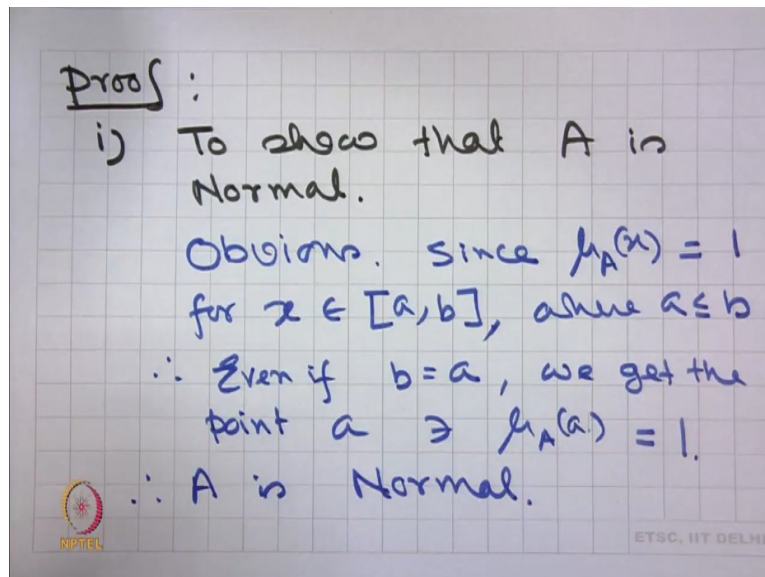 Proof :
i) To show that A is
Normal.
Obvious. Since μ_A(x) = 1
for x ∈ [a, b], where a ≤ b
∴ Even if b = a, we get the
point a ∋ μ_A(a) = 1.
∴ A is Normal.
NPTEL
ETSC, IIT DELHI